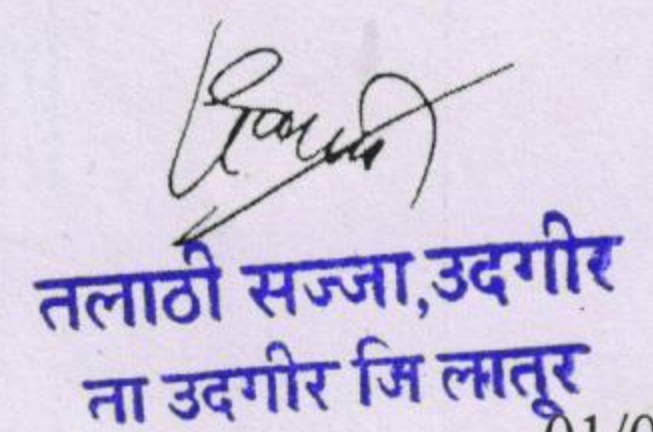 तलाठी सज्जा,उदगीर
ता उदगीर जि लातूर